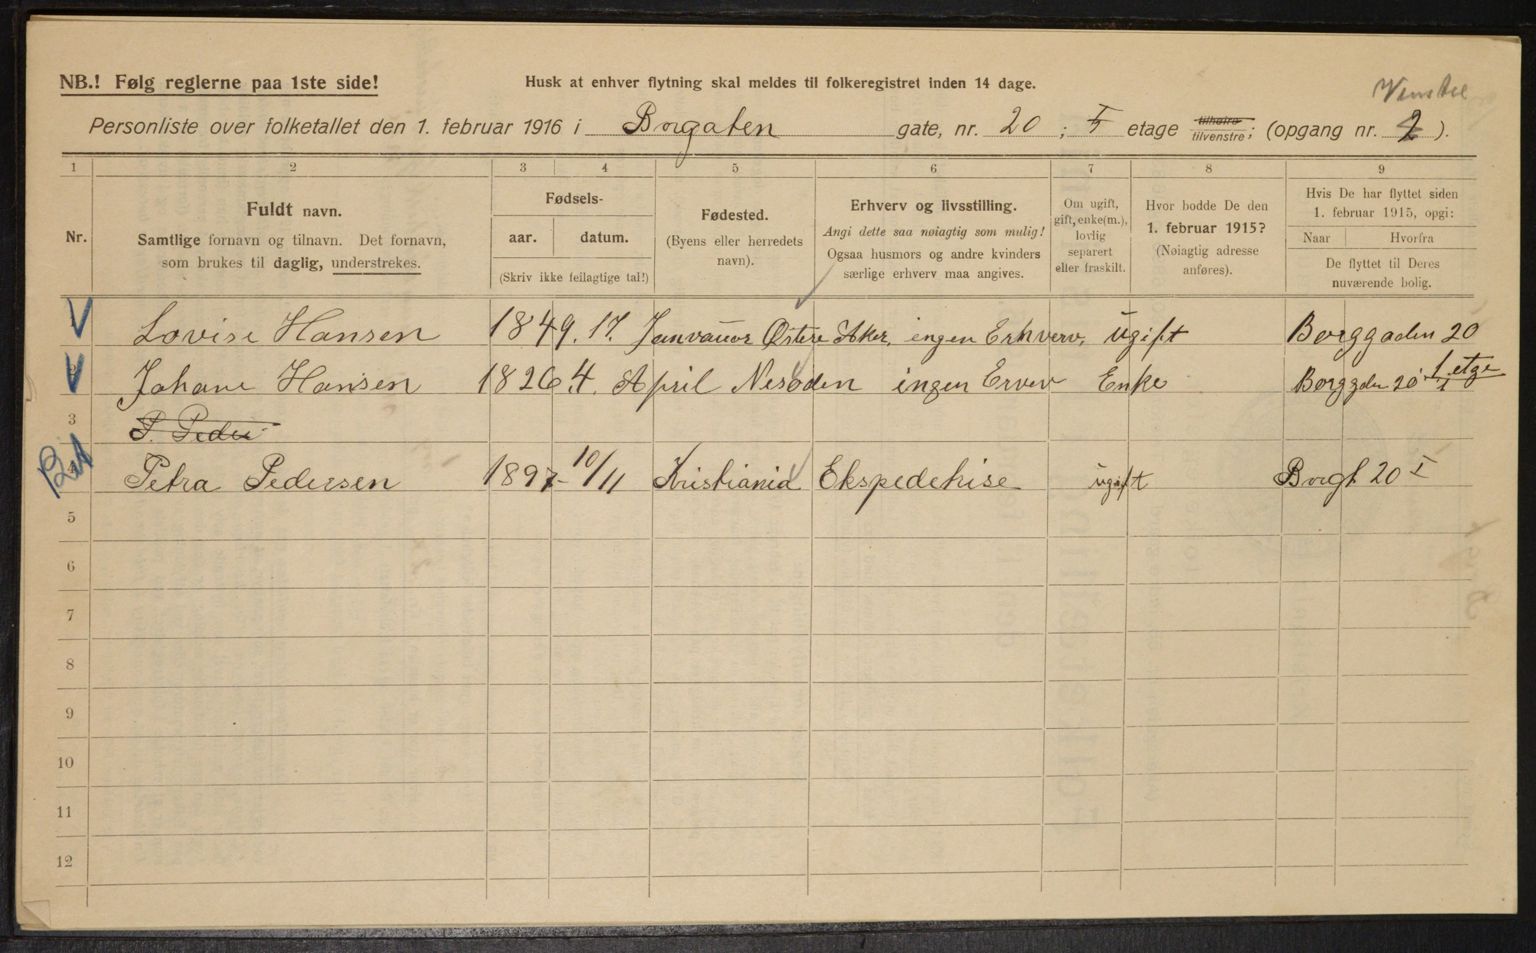 NB.! Følg reglerne paa 1ste side!
Husk at enhver flytning skal meldes til folkeregistret inden 14 dage.
Venstre
Personliste over folketallet den 1. februar 1916 i Borgaten gate, nr. 20 ; I etage tilhøire tilvenstre; (opgang nr. 2 ).
1 2 3 4 5 6 7 8 9
Nr.
Fuldt navn.
Samtlige fornavn og tilnavn. Det fornavn,
som brukes til daglig, understrekes.
Fødsels-
aar. datum.
(Skriv ikke feilagtige tal!)
Fødested.
(Byens eller herredets
navn).
Erhverv og livsstilling.
Angi dette saa nøiagtig som mulig!
Ogsaa husmors og andre kvinders
særlige erhverv maa angives.
Om ugift,
gift, enke(m.),
lovlig
separert
eller fraskilt.
Hvor bodde De den
1. februar 1915?
(Nøiagtig adresse
anføres).
Hvis De har flyttet siden
1. februar 1915, opgi:
Naar Hvorfra
De flyttet til Deres
nuværende bolig.
1 Lovise Hansen 1849. 17. Janvauor Østere Aker. ingen Erhverv. ugift Borggaden 20
2 Johane Hansen 1826 4. April Nesodden ingen Erverv Enke Borggden 20 1 etge
3 P. Peder
4 Petra Pedersen 1897 10/11 Kristiania Ekspedetrise ugift Borgt 20 I
5
6
7
8
9
10
11
12